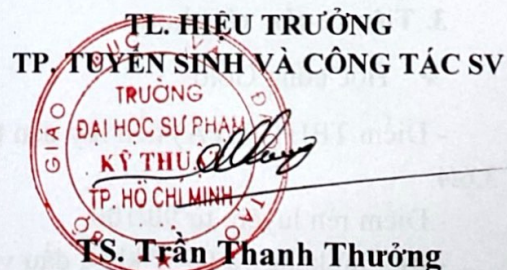 TL. HIỆU TRƯỞNG
TP. TUYỂN SINH VÀ CÔNG TÁC SV
GIÁO
DỤC
TẠO
TRƯỜNG
ĐẠI HỌC SƯ PHẠM
KỸ THU
TP. HỒ CHÍ MINH
TS. Trần Thanh Thưởng